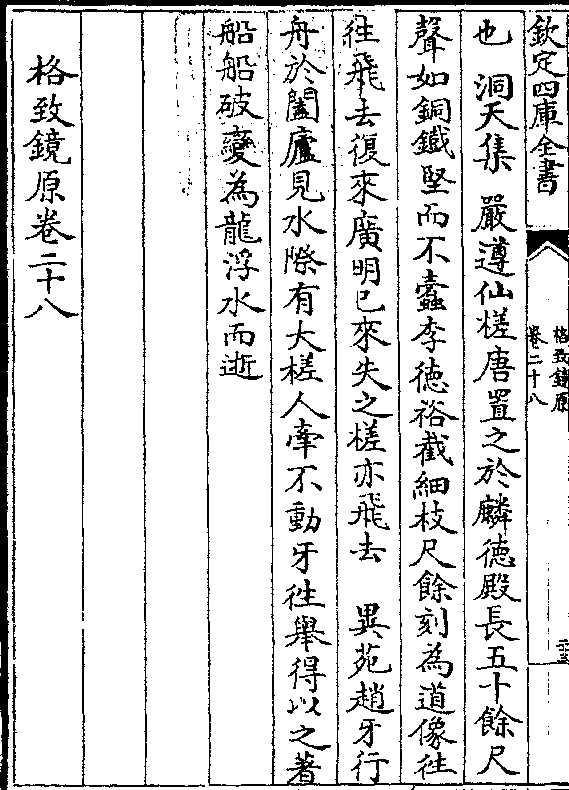 欽定四庫全書
格致鏡原
卷二十八
也　洞天集　嚴遵仙槎唐置之於麟德殿長五十餘尺
聲如銅鐵堅而不蠹李德裕截細枝尺餘刻為道像往
往飛去復來廣明已來失之槎亦飛去　異苑趙牙行
舟於闔廬見水際有大槎人牽不動牙往舉得以之著
船船破變為龍浮水而逝
格致鏡原卷二十八